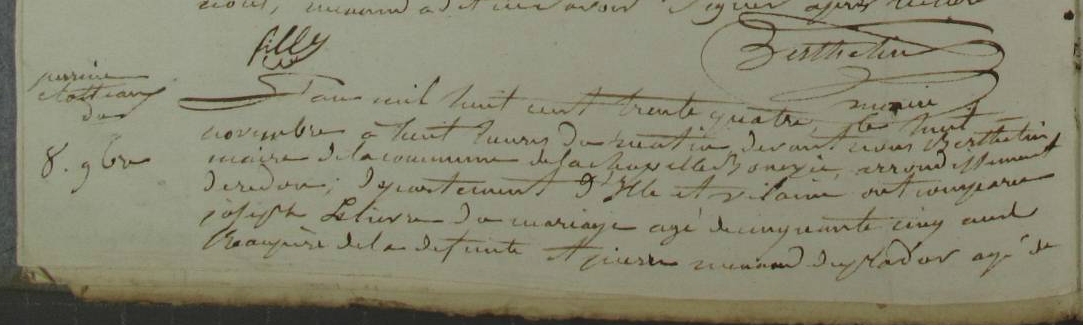 nous, menard a dit ne savoir signer après lecture
filly
Berthelin
maire
perrine
du
8. 9bre
L'an mil huit cent trente quatre, le huit
novembre à huit heures du matin, devant nous Berthelin
maire de la commune de la chapelle Bouexic, arrondissement
de redon, département d'Ille et vilaine ont comparu
joseph Lelievre du mariage agé de cinquante cinq ans
Beaupère de la defunte et pierre menard du prador agé de